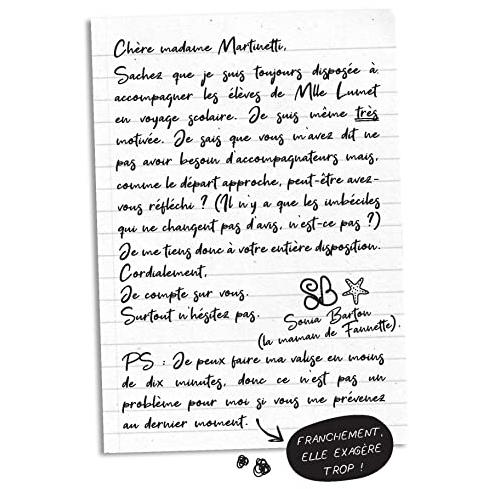 Chère madame Martinetti,
Sachez que je suis toujours disposée à
accompagner les élèves de Mlle Lumet
en voyage scolaire. Je suis même très
motivée. Je sais que vous m'avez dit ne
pas avoir besoin d'accompagnateurs mais,
comme le départ approche, peut-être avez-
vous réfléchi ? (Il n'y a que les imbéciles
qui ne changent pas d'avis, n'est-ce pas ?)
Je me tiens donc à votre entière disposition.
Cordialement,
Je compte sur vous.
Surtout n'hésitez pas.
SB
Sonia Bartou
(la maman de Fannette).
PS : Je peux faire ma valise en moins
de dix minutes, donc ce n'est pas un
problème pour moi si vous me prévenez
au dernier moment.
FRANCHEMENT,
ELLE EXAGÈRE
TROP !